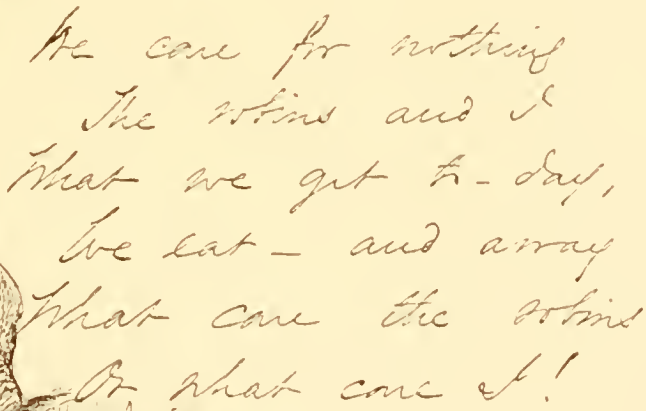 We care for nothing
The robins and I
What we get to-day,
We eat — and away
What care the robins
Or what care I!